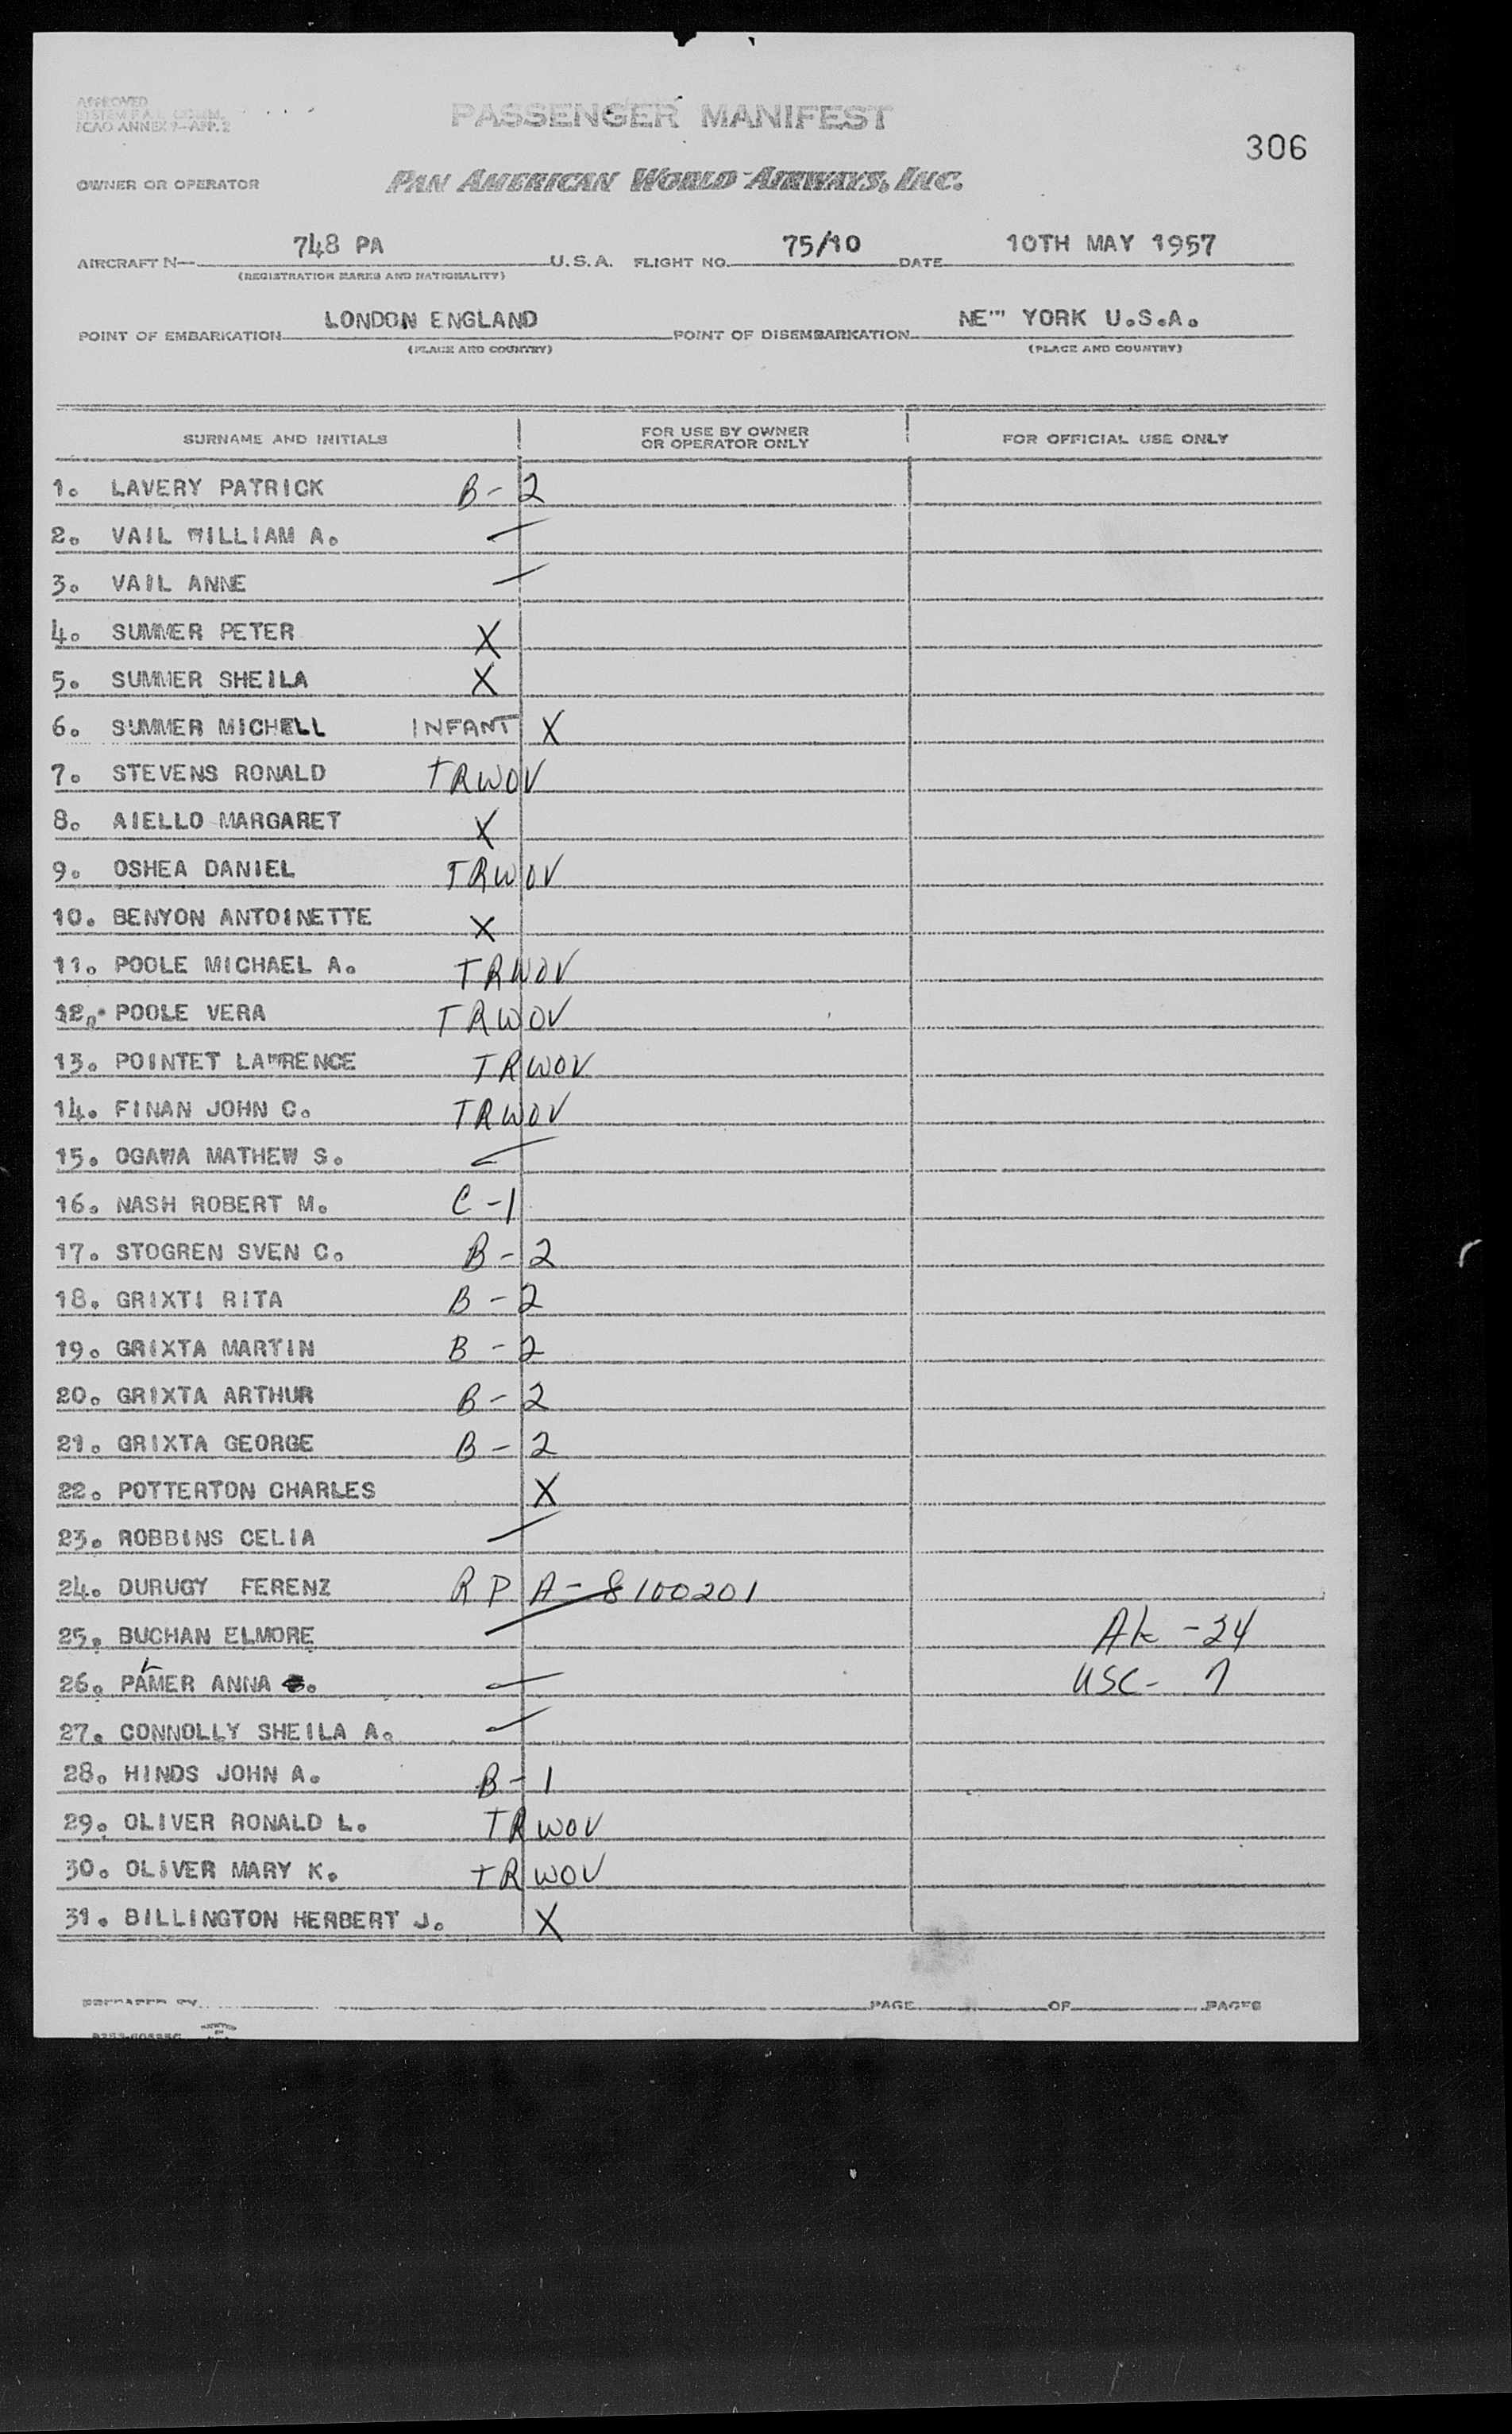 APPROVED
ICAO ANNEX 9-APP. 2
PASSENGER MANIFEST
306
OWNER OR OPERATOR PAN AMERICAN WORLD AIRWAYS, INC.
AIRCRAFT N— 748 PA U.S.A. FLIGHT NO. 75/10 DATE 10TH MAY 1957
(REGISTRATION MARKS AND NATIONALITY)
POINT OF EMBARKATION LONDON ENGLAND POINT OF DISEMBARKATION NE"' YORK U.S.A.
(PLACE AND COUNTRY) (PLACE AND COUNTRY)
SURNAME AND INITIALS FOR USE BY OWNER OR OPERATOR ONLY FOR OFFICIAL USE ONLY
1. LAVERY PATRICK B-2
2. VAIL WILLIAM A. —
3. VAIL ANNE —
4. SUMMER PETER X
5. SUMMER SHEILA X
6. SUMMER MICHELL INFANT X
7. STEVENS RONALD TRWOV
8. AIELLO MARGARET X
9. OSHEA DANIEL TRWOV
10. BENYON ANTOINETTE X
11. POOLE MICHAEL A. TRWOV
12. POOLE VERA TRWOV
13. POINTET LAWRENCE TRWOV
14. FINAN JOHN C. TRWOV
15. OGAWA MATHEW S. —
16. NASH ROBERT M. C-1
17. STOGREN SVEN C. B-2
18. GRIXTI RITA B-2
19. GRIXTA MARTIN B-2
20. GRIXTA ARTHUR B-2
21. GRIXTA GEORGE B-2
22. POTTERTON CHARLES X
23. ROBBINS CELIA —
24. DURUGY FERENZ RP A-8100201
25. BUCHAN ELMORE — Ak-24
26. PALMER ANNA — USC-7
27. CONNOLLY SHEILA A. —
28. HINDS JOHN A. B-1
29. OLIVER RONALD L. TRWOV
30. OLIVER MARY K. TRWOV
31. BILLINGTON HERBERT J. X
PREPARED BY PAGE OF PAGES